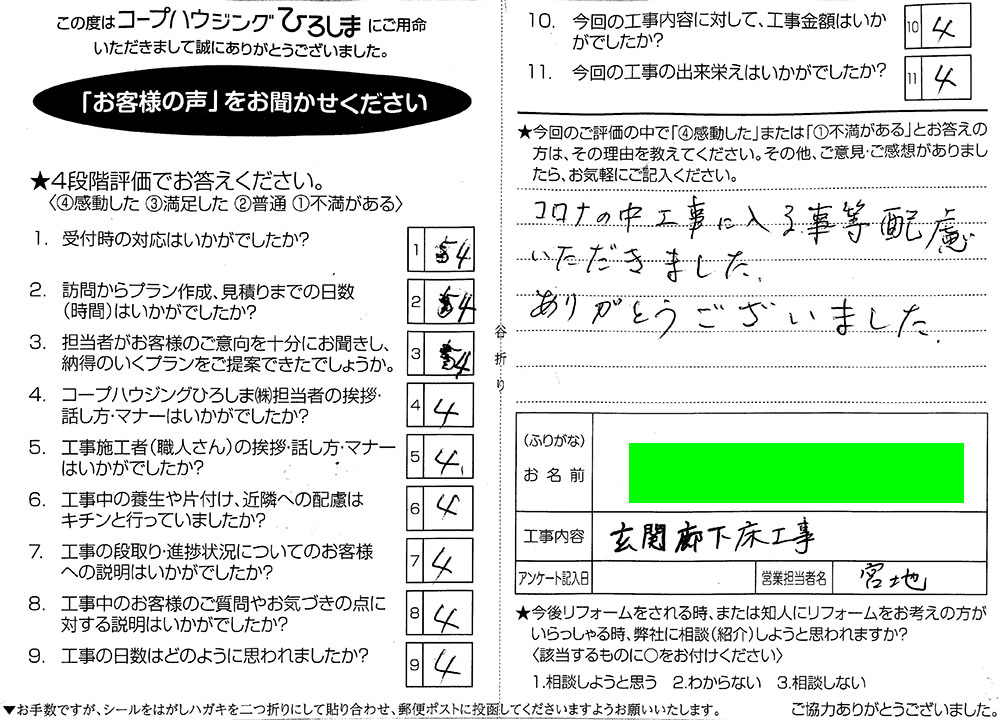 この度はコープハウジングひろしまにご用命
いただきまして誠にありがとうございました。
「お客様の声」をお聞かせください
★4段階評価でお答えください。
〈④感動した ③満足した ②普通 ①不満がある〉
1. 受付時の対応はいかがでしたか?
1 4
2. 訪問からプラン作成、見積りまでの日数
(時間)はいかがでしたか?
2 4
3. 担当者がお客様のご意向を十分にお聞きし、
納得のいくプランをご提案できたでしょうか。
3 4
4. コープハウジングひろしま㈱担当者の挨拶・
話し方・マナーはいかがでしたか?
4 4
5. 工事施工者(職人さん)の挨拶・話し方・マナー
はいかがでしたか?
5 4
6. 工事中の養生や片付け、近隣への配慮は
キチンと行っていましたか?
6 4
7. 工事の段取り・進捗状況についてのお客様
への説明はいかがでしたか?
7 4
8. 工事中のお客様のご質問やお気づきの点に
対する説明はいかがでしたか?
8 4
9. 工事の日数はどのように思われましたか?
9 4
▼お手数ですが、シールをはがしハガキを二つ折りにして貼り合わせ、郵便ポストに投函してくださいますようお願いいたします。
谷折り
10. 今回の工事内容に対して、工事金額はいか
がでしたか?
10 4
11. 今回の工事の出来栄えはいかがでしたか?
11 4
★今回のご評価の中で「④感動した」または「①不満がある」とお答えの
方は、その理由を教えてください。その他、ご意見・ご感想がありまし
たら、お気軽にご記入ください。
コロナの中工事に入る事等配慮
いただきました.
ありがとうございました.
(ふりがな)
お名前
工事内容 玄関廊下床工事
アンケート記入日 営業担当者名 宮地
★今後リフォームをされる時、または知人にリフォームをお考えの方が
いらっしゃる時、弊社に相談(紹介)しようと思われますか?
〈該当するものに○をお付けください〉
1.相談しようと思う 2.わからない 3.相談しない
ご協力ありがとうございました。